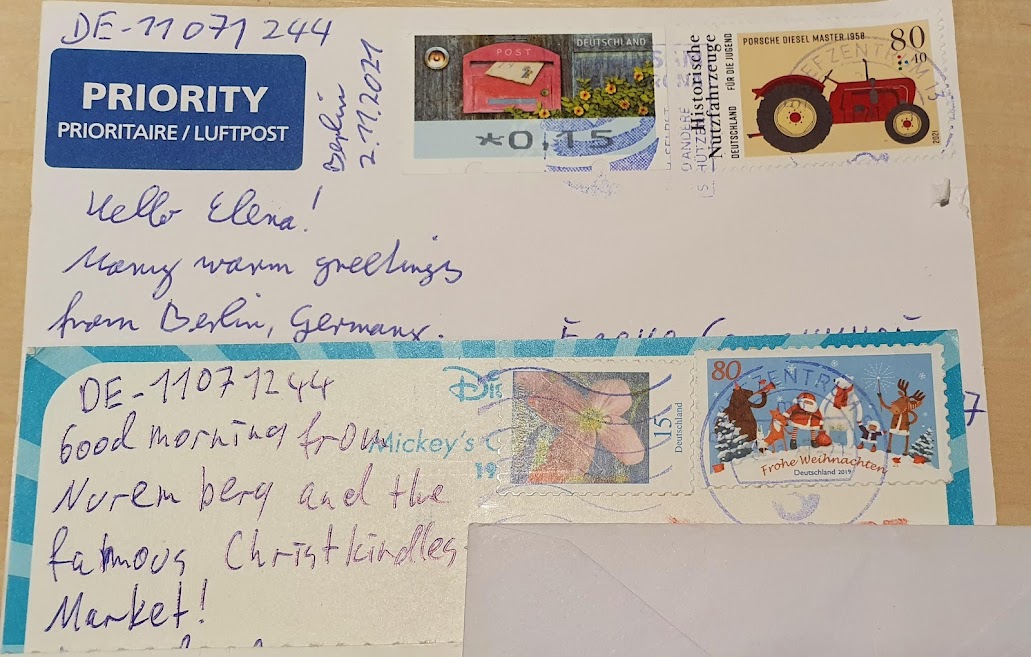 DE-11071244
PRIORITY
PRIORITAIRE / LUFTPOST
Berlin
2.11.2021
POST
DEUTSCHLAND
*0,15
Historische
Nutzfahrzeuge
DEUTSCHLAND FÜR DIE JUGEND
PORSCHE DIESEL MASTER 1958
80
40
2021
Hello Elena!
Many warm greetings
from Berlin, Germany.
DE-11071244
Good morning from
Nuremberg and the
famous Christkindles-
Market!
Mickey's
19
15
Deutschland
80
Frohe Weihnachten
Deutschland 2019
7